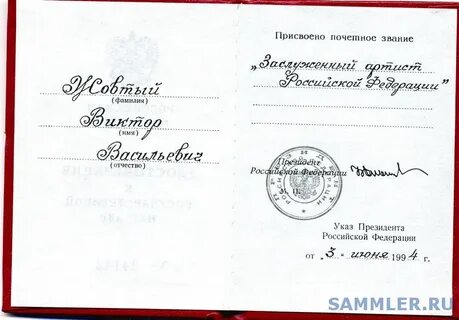 Жовтый
(фамилия)
Виктор
(имя)
Васильевич
(отчество)
Присвоено почетное звание
„Заслуженный артист
Российской Федерации"
Президент
Российской Федерации
М. П.
Указ Президента
Российской Федерации
от „3" июня 1994 г.
SAMMLER.RU